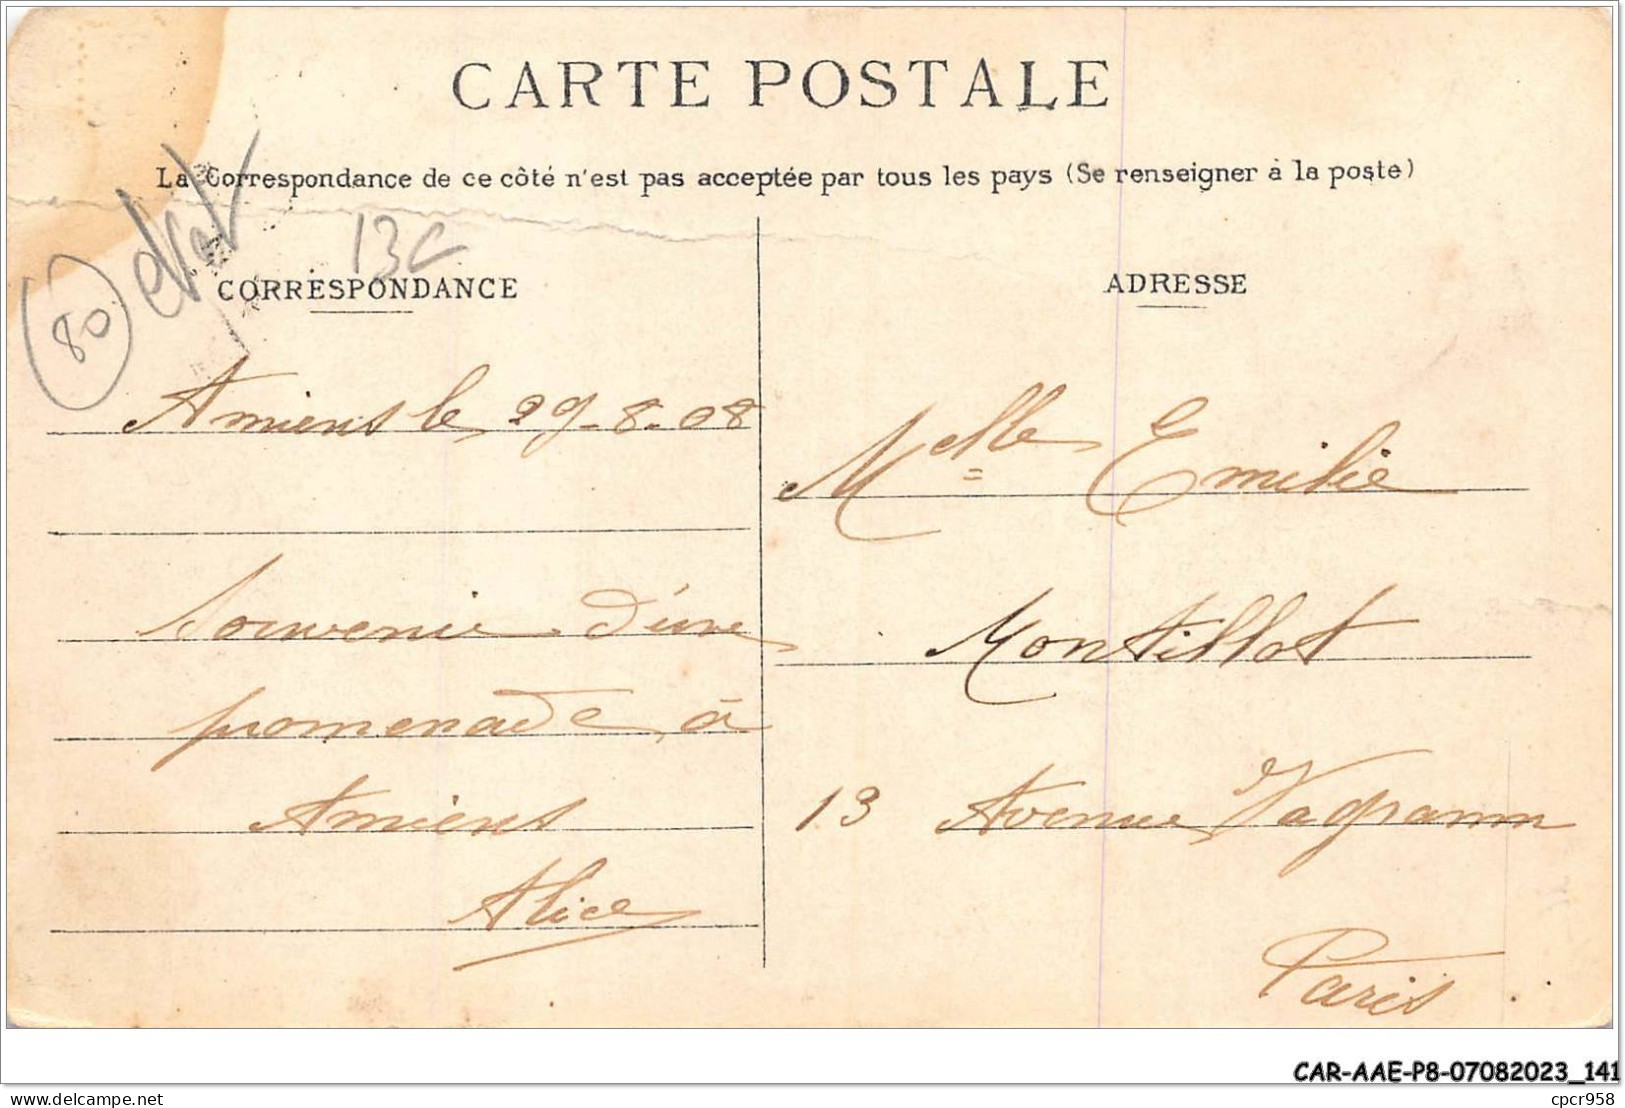 CARTE POSTALE
La Correspondance de ce côté n'est pas acceptée par tous les pays (Se renseigner à la poste)
80
13C
CORRESPONDANCE
Amiens le 29-8-08
Souvenir d'une
promenade à
Amiens
Alice
ADRESSE
Melle Emilie
Montillot
13 Avenue Vagramm
Paris
CAR-AAE-P8-07082023_141
delcampe.net
cpcr958